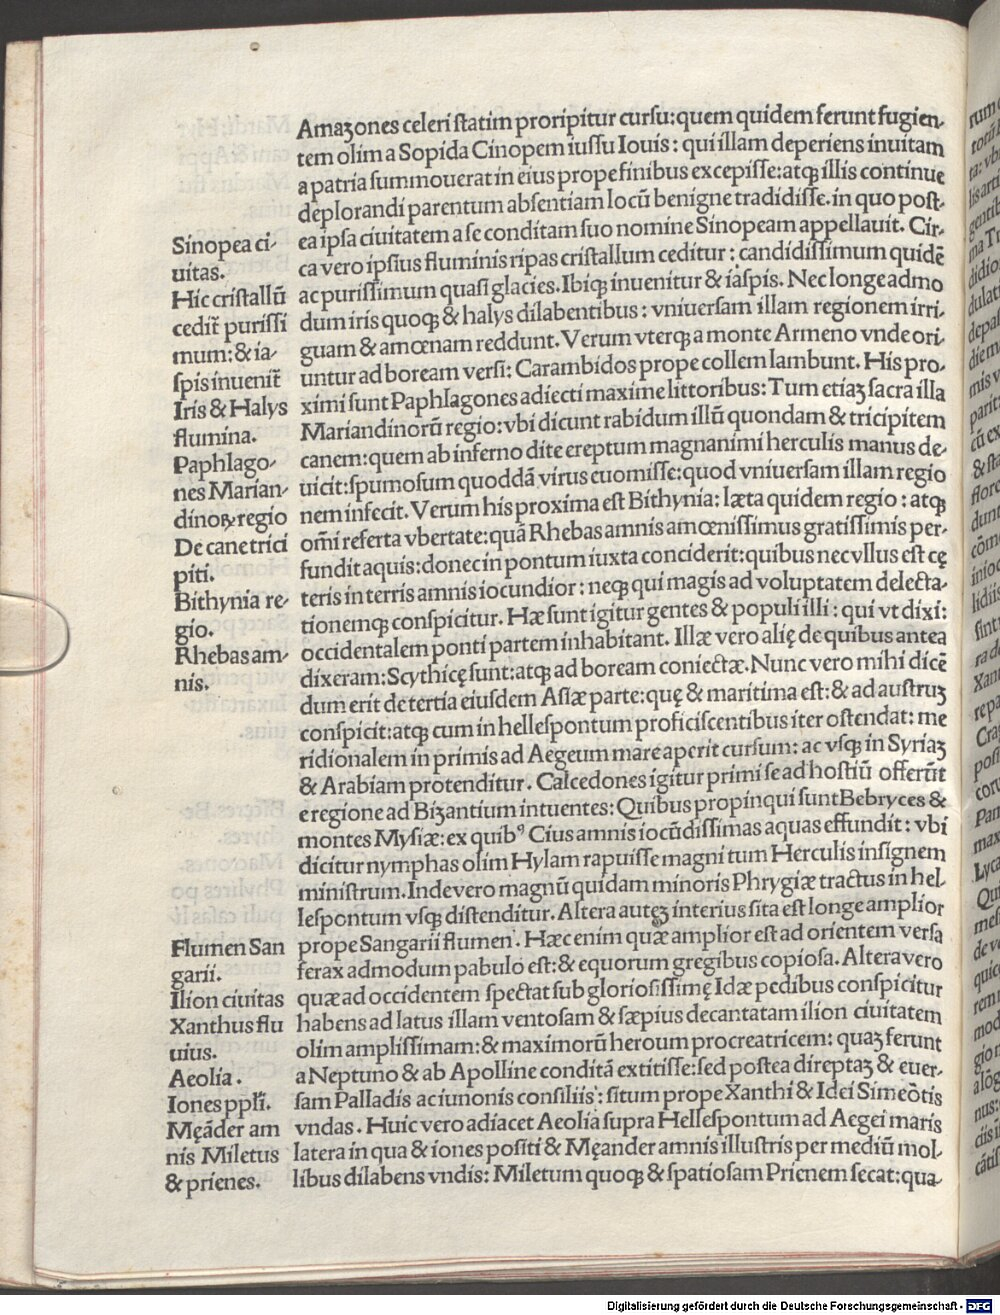 Amaʒones celeri ſtatim proripitur curſu: quem quidem ferunt fugien-
tem olim a Sopida Cinopem iuſſu Iouis: qui illam deperiens inuitam
a patria ſummouerat in eius prope finibus excepiſſe: atqꝫ illis continue
deplorandi parentum abſentiam locū benigne tradidiſſe. in quo poſt-
ea ipſa ciuitatem a ſe conditam ſuo nomine Sinopeam appellauit. Cir-
ca vero ipſius fluminis ripas criſtallum ceditur: candidiſſimum quidē
ac puriſſimum quaſi glacies. Ibiqꝫ inuenitur & iaſpis. Nec longe admo
dum iris quoqꝫ & halys dilabentibus: vniuerſam illam regionem irri-
guam & amœnam reddunt. Verum vterqꝫ a monte Armeno vnde ori-
untur ad boream verſi: Carambidos prope collem lambunt. His pro-
ximi ſunt Paphlagones adiecti maxime littoribus: Tum etiaꝫ ſacra illa
Mariandinorū regio: vbi dicunt rabidum illū quondam & tricipitem
canem: quem ab inferno dite ereptum magnanimi herculis manus de-
uicit: ſpumoſum quoddā virus euomiſſe: quod vniuerſam illam regio
nem infecit. Verum his proxima eſt Bithynia: læta quidem regio: atqꝫ
om̄i referta vbertate: quā Rhebas amnis amœniſſimus gratiſſimis per-
fundit aquis: donec in pontum iuxta conciderit: quibus nec vllus eſt cę
teris in terris amnis iocundior: neqꝫ qui magis ad voluptatem delecta-
tionemqꝫ conſpicitur. Hæ ſunt igitur gentes & populi illi: qui vt dixi:
occidentalem ponti partem inhabitant. Illæ vero alię de quibus antea
dixeram: Scythicę ſunt: atqꝫ ad boream coniectæ. Nunc vero mihi dicē
dum erit de tertia eiuſdem Aſiæ parte: quę & maritima eſt: & ad auſtruꝫ
conſpicit: atqꝫ cum in helleſpontum proficiſcentibus iter oſtendat: me
ridionalem in primis ad Aegeum mare aperit curſum: ac vſqꝫ in Syriaꝫ
& Arabiam protenditur. Calcedones igitur primi ſe ad hoſtiū offerūt
e regione ad Biʒantium intuentes: Quibus propinqui ſunt Bebryces &
montes Myſiæ: ex quibꝰ Cius amnis iocūdiſſimas aquas effundit: vbi
dicitur nymphas olim Hylam rapuiſſe magni tum Herculis inſignem
miniſtrum. Inde vero magnū quidam minoris Phrygiæ tractus in hel-
leſpontum vſqꝫ diſtenditur. Altera auteꝫ interius ſita eſt longe amplior
prope Sangarii flumen. Hæc enim quæ amplior eſt ad orientem verſa
ferax admodum pabulo eſt: & equorum gregibus copioſa. Altera vero
quæ ad occidentem ſpectat ſub glorioſiſſimę Idæ pedibus conſpicitur
habens ad latus illam ventoſam & ſæpius decantatam ilion ciuitatem
olim ampliſſimam: & maximorū heroum procreatricem: quaꝫ ferunt
a Neptuno & ab Apolline conditā extitiſſe: ſed poſtea direptaꝫ & euer-
ſam Palladis ac iunonis conſiliis: ſitum prope Xanthi & Idei Simeōtis
vndas. Huic vero adiacet Aeolia ſupra Helleſpontum ad Aegei maris
latera in qua & iones poſiti & Męander amnis illuſtris per mediū mol-
libus dilabens vndis: Miletum quoqꝫ & ſpatioſam Prienem ſecat: qua-
Sinopea ci-
uitas.
Hic criſtallū
cedit̄ puriſſi
mum: & ia-
ſpis inuenit̄
Iris & Halys
flumina.
Paphlago-
nes Marian-
dinoꝝ regio
De cane trici
piti.
Bithynia re-
gio.
Rhebas am-
nis.
Flumen San
garii.
Ilion ciuitas
Xanthus flu
uius.
Aeolia.
Iones ppl̄i.
Męāder am
nis Miletus
& prienes.
Digitalisierung gefördert durch die Deutsche Forschungsgemeinschaft - DFG